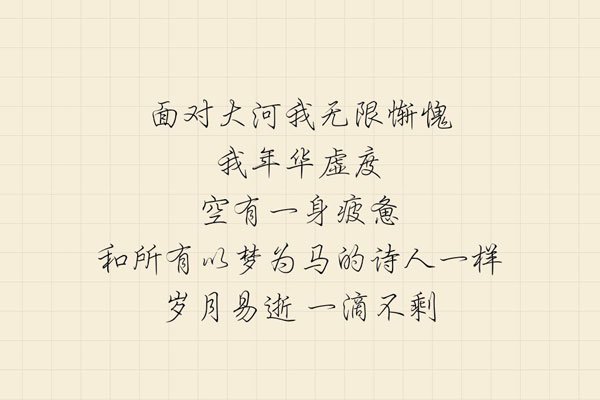 面对大河我无限惭愧
我年华虚度
空有一身疲惫
和所有以梦为马的诗人一样
岁月易逝 一滴不剩